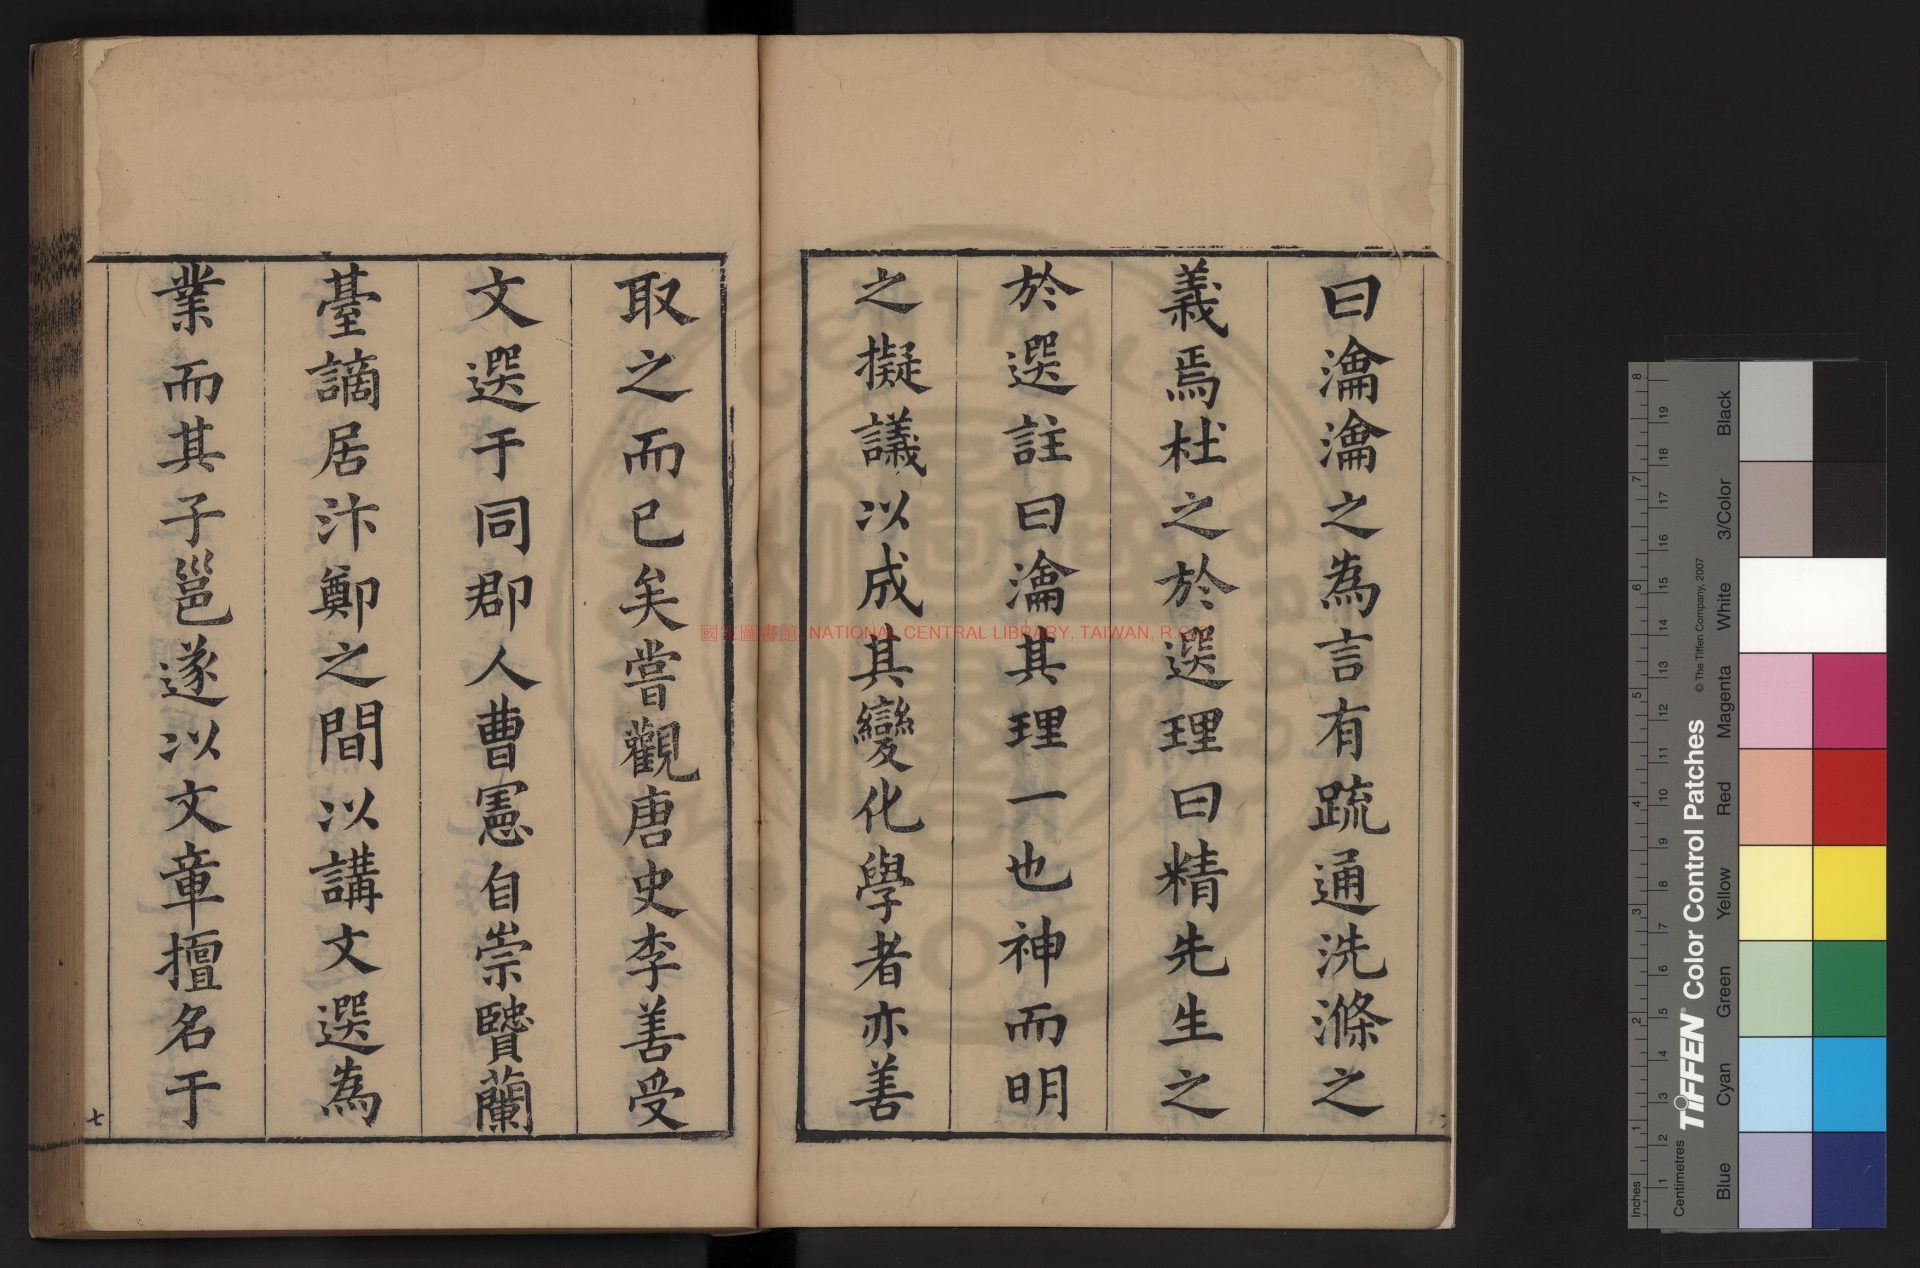 曰瀹瀹之為言有疏通洗滌之
義焉杜之於選理曰精先生之
於選註曰瀹其理一也神而明
之擬議以成其變化學者亦善
取之而已矣嘗觀唐史李善受
文選于同郡人曹憲自崇賢蘭
臺謫居汴鄭之間以講文選為
業而其子邕遂以文章擅名于
七
國家圖書館 NATIONAL CENTRAL LIBRARY, TAIWAN, R.O.C
Inches
Centimetres
TIFFEN Color Control Patches
© The Tiffen Company, 2007
Blue
Cyan
Green
Yellow
Red
Magenta
White
3/Color
Black